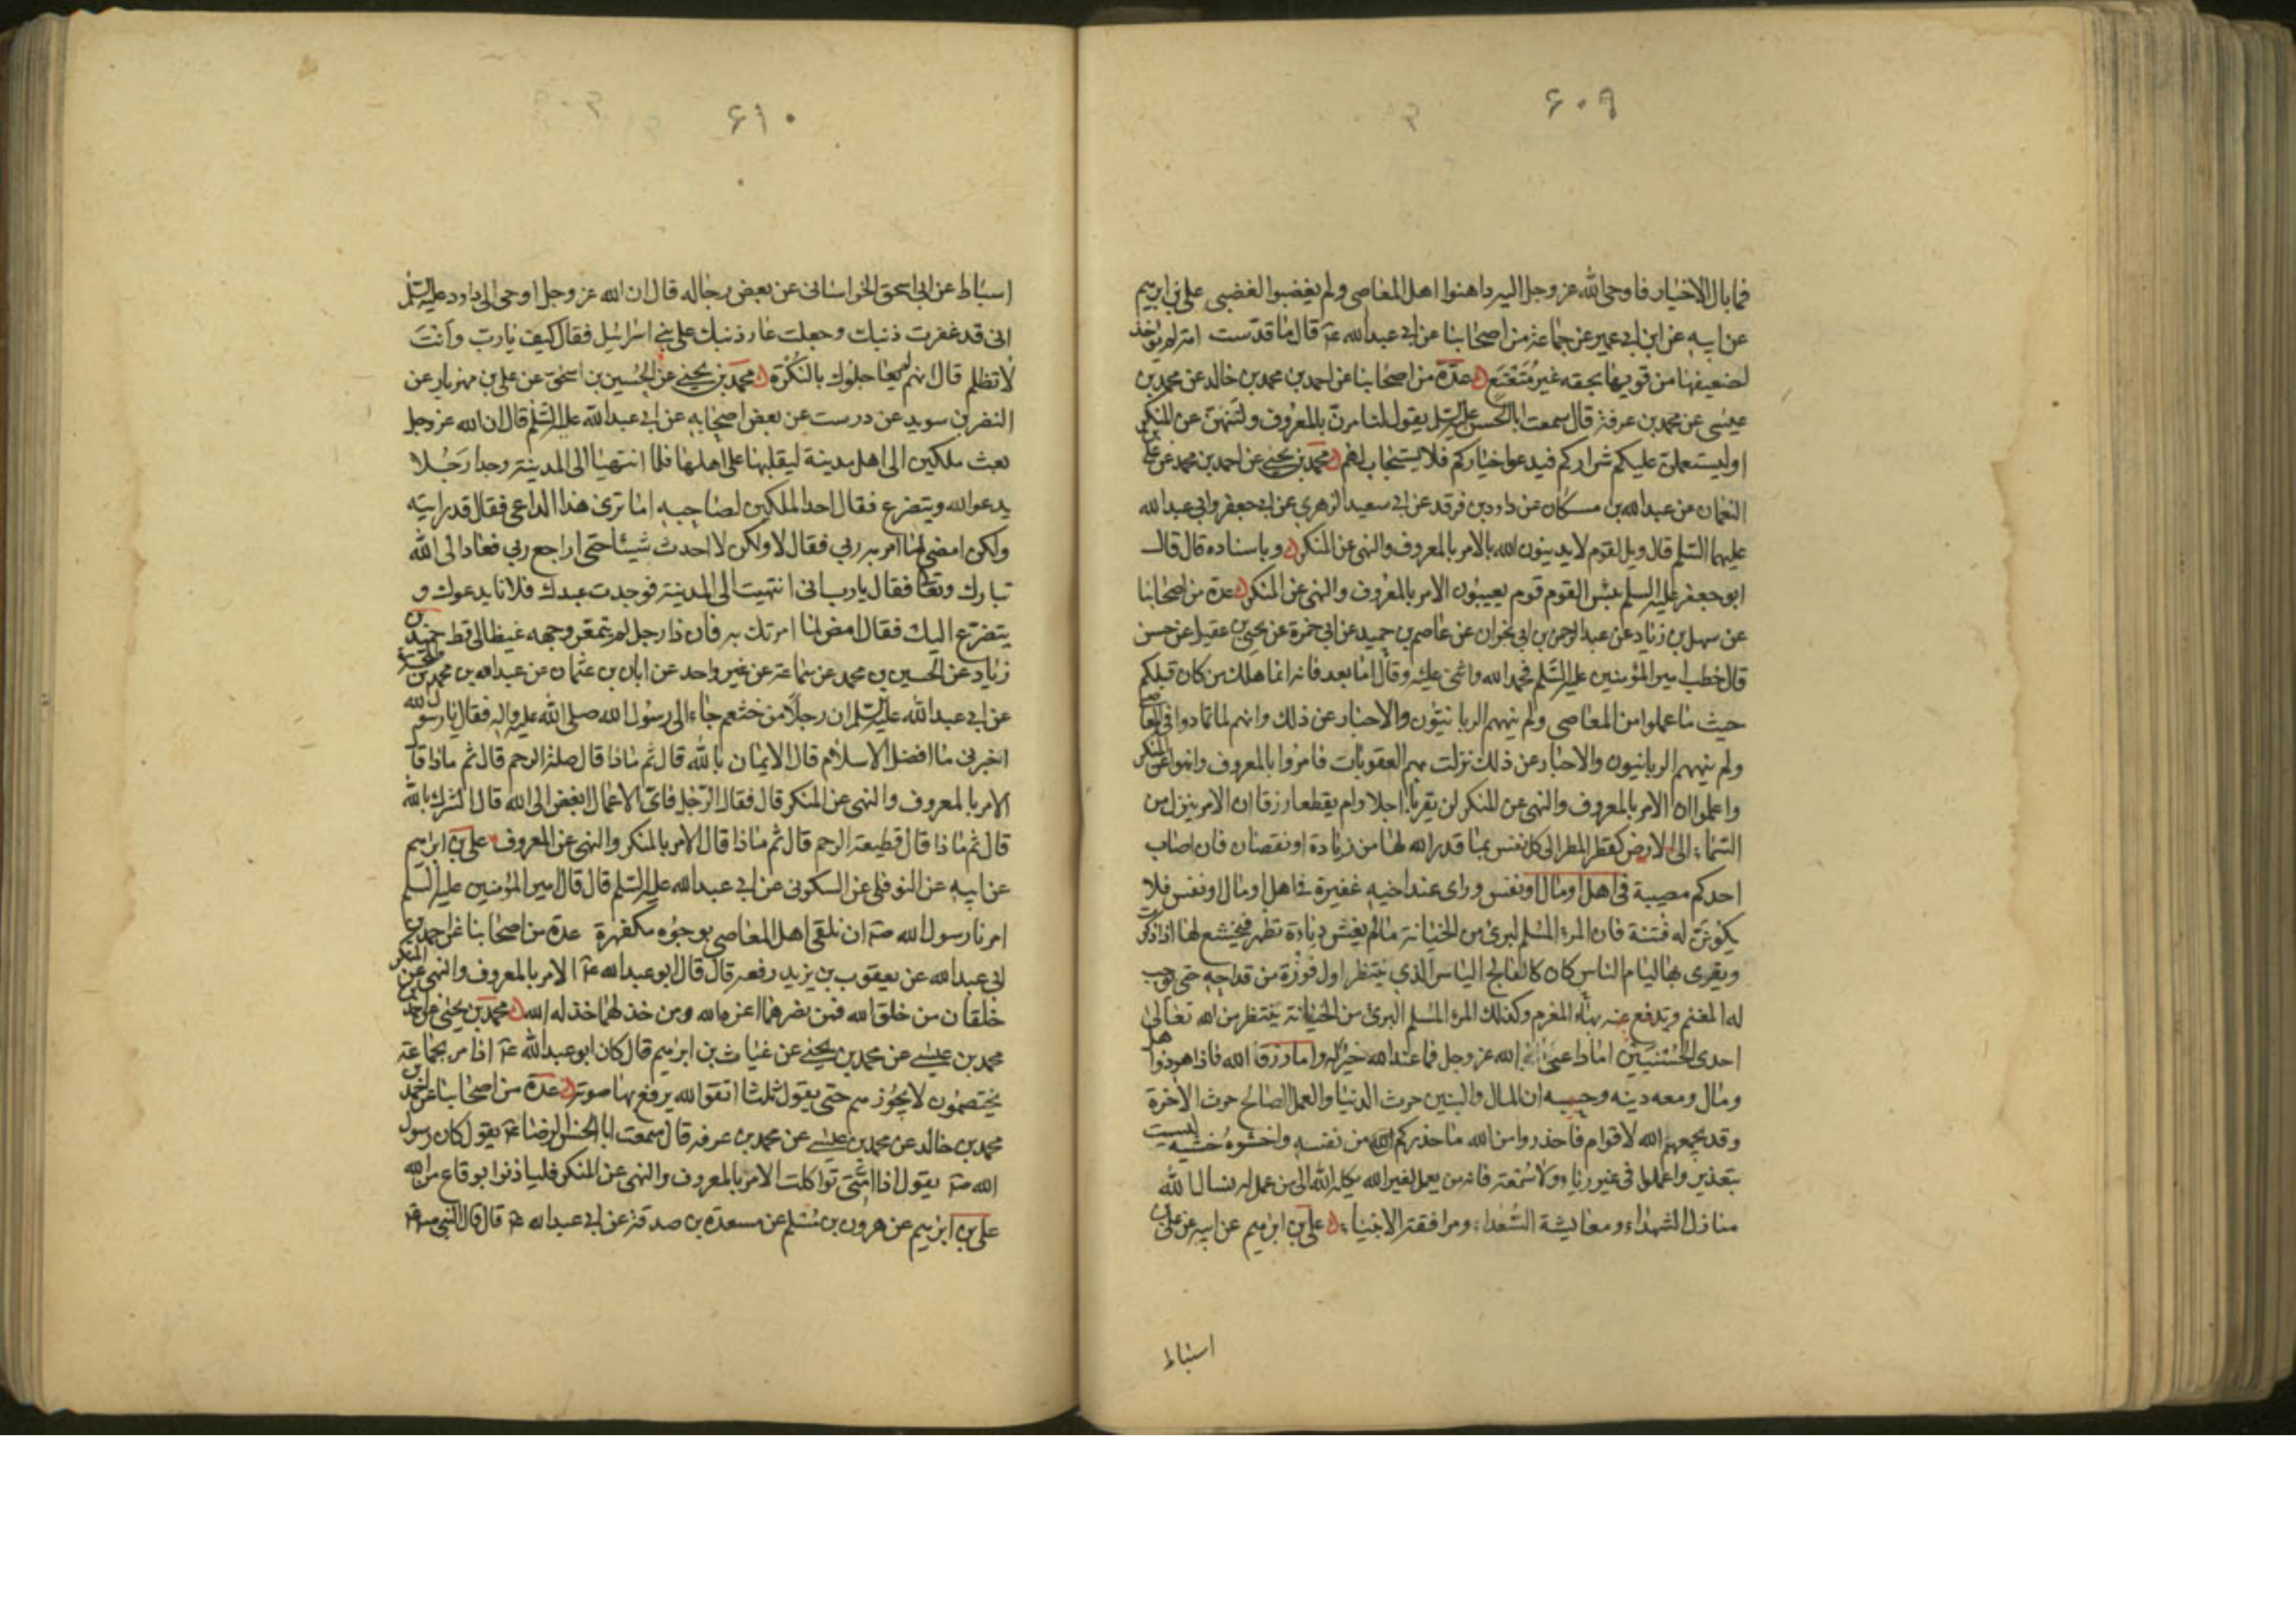 ۶۰۹
فما بال الاخيار فاوحى الله عز وجل اليه داهنوا اهل المعاصى ولم يغضبوا لغضبى على بن ابرهيم
عن ابيه عن ابن ابى عمير عن جماعة من اصحابنا عن ابى عبدالله عم قال ما قدست امة لم يؤخذ
لضعيفها من قويها بحقه غير متعتع عدة من اصحابنا عن احمد بن محمد بن خالد عن محمد بن
عيسى عن محمد بن عرفة قال سمعت ابا الحسن عليه السلم يقول لتامرن بالمعروف ولتنهن عن المنكر
او ليستعملن عليكم شراركم فيدعوا خياركم فلا يستجاب لهم محمد بن يحيى عن احمد بن محمد عن على بن
النعمان عن عبدالله بن مسكان عن داود بن فرقد عن ابى سعيد الزهرى عن ابى جعفر وابى عبدالله
عليهما السلم قال ويل لقوم لا يدينون الله بالامر بالمعروف والنهى عن المنكر وباسناده قال قال
ابو جعفر عليه السلم بئس القوم قوم يعيبون الامر بالمعروف والنهى عن المنكر عدة من اصحابنا
عن سهل بن زياد عن عبد الرحمن بن ابى نجران عن عاصم بن حميد عن ابى حمزة عن يحيى بن عقيل عن حسن
قال خطب امير المؤمنين عليه السلم فحمد الله واثنى عليه وقال اما بعد فانه انما هلك من كان قبلكم
حيث ما عملوا من المعاصى ولم ينههم الربانيون والاحبار عن ذلك وانهم لما تمادوا فى المعاصى
ولم ينههم الربانيون والاحبار عن ذلك نزلت بهم العقوبات فامروا بالمعروف وانهوا عن المنكر
واعلموا ان الامر بالمعروف والنهى عن المنكر لن يقربا اجلا ولم يقطعا رزقا ان الامر ينزل من
السماء الى الارض كقطر المطر الى كل نفس بما قدر الله لها من زيادة او نقصان فان اصاب
احدكم مصيبة فى اهل او مال او نفس وراى عند اخيه غفيرة فى اهل او مال او نفس فلا
يكونن له فتنة فان المرء المسلم لبرىء من الخيانة ما لم يغش دناءة تظهر فيخشع لها اذا ذكرت
ويغرى بها ليام الناس كان كالفالج الياسر الذى ينتظر اول فوزة من قداحه حتى توجب
له المغنم ويدفع عنه بها المغرم وكذلك المرء المسلم البرىء من الخيانة ينتظر من الله تعالى
احدى الحسنيين اما داعى الله عز وجل فما عند الله خير له واما رزق الله فاذا هو ذو اهل
ومال ومعه دينه وحسبه ان المال والبنين حرث الدنيا والعمل الصالح حرث الاخرة
وقد يجمعهم الله لاقوام فاحذروا من الله ما حذركم الله من نفسه واخشوه خشية ليست
بتعذير واعملوا فى غير رياء ولا سمعة فانه من يعمل لغير الله يكله الله الى من عمل له نسال الله
منازل الشهداء ومعايشة السعداء ومرافقة الانبياء على بن ابرهيم عن ابيه عن على بن
اسباط
۶۱۰
اسباط عن ابى اسحق الخراسانى عن بعض رجاله قال ان الله عز وجل اوحى الى داود عليه السلم
انى قد غفرت ذنبك وجعلت عار ذنبك على بنى اسرائيل فقال كيف يا رب وانت
لا تظلم قال انهم لم يعاجلوك بالنكرة محمد بن يحيى عن الحسين بن اسحق عن على بن مهزيار عن
النضر بن سويد عن درست عن بعض اصحابه عن ابى عبدالله عليه السلم قال ان الله عز وجل
بعث ملكين الى اهل مدينة ليقلباها على اهلها فلما انتهيا الى المدينة وجدا رجلا
يدعو الله ويتضرع فقال احد الملكين لصاحبه اما ترى هذا الداعى فقال قد رايته
ولكن امضى لما امر به ربى فقال لا ولكن لا احدث شيئا حتى اراجع ربى فعاد الى الله
تبارك وتعالى فقال يا رب انى انتهيت الى المدينة فوجدت عبدك فلانا يدعوك و
يتضرع اليك فقال امض لما امرتك به فان ذا رجل لم يتمعر وجهه غيظا لى قط حميد بن
زياد عن الحسين بن محمد عن سماعة عن غير واحد عن ابان بن عثمان عن عبدالله بن محمد بن طلحة
عن ابى عبدالله عليه السلم ان رجلا من خثعم جاء الى رسول الله صلى الله عليه واله فقال يا رسول الله
اخبرنى ما افضل الاسلام قال الايمان بالله قال ثم ماذا قال صلة الرحم قال ثم ماذا قا
الامر بالمعروف والنهى عن المنكر قال فقال الرجل فاى الاعمال ابغض الى الله قال الشرك بالله
قال ثم ماذا قال قطيعة الرحم قال ثم ماذا قال الامر بالمنكر والنهى عن المعروف على بن ابرهيم
عن ابيه عن النوفلى عن السكونى عن ابى عبدالله عليه السلم قال قال امير المؤمنين عليه السلم
امرنا رسول الله صه ان نلقى اهل المعاصى بوجوه مكفهرة عدة من اصحابنا عن احمد بن
ابى عبدالله عن يعقوب بن يزيد رفعه قال قال ابو عبدالله عم الامر بالمعروف والنهى عن المنكر
خلقان من خلق الله فمن نصرهما اعزه الله ومن خذلهما خذله الله محمد بن يحيى عن احمد بن
محمد بن عيسى عن محمد بن يحيى عن غياث بن ابرهيم قال كان ابو عبدالله عم اذا مر بجماعة
يختصمون لا يجوزهم حتى يقول ثلثا اتقوا الله يرفع بها صوته عدة من اصحابنا عن احمد بن
محمد بن خالد عن محمد بن عيسى عن محمد بن عرفه قال سمعت ابا الحسن الرضا عم يقول كان رسول
الله صه يقول اذا امتى تواكلت الامر بالمعروف والنهى عن المنكر فلياذنوا بوقاع من الله
على بن ابرهيم عن هرون بن مسلم عن مسعدة بن صدقة عن ابى عبدالله عم قال قال النبى